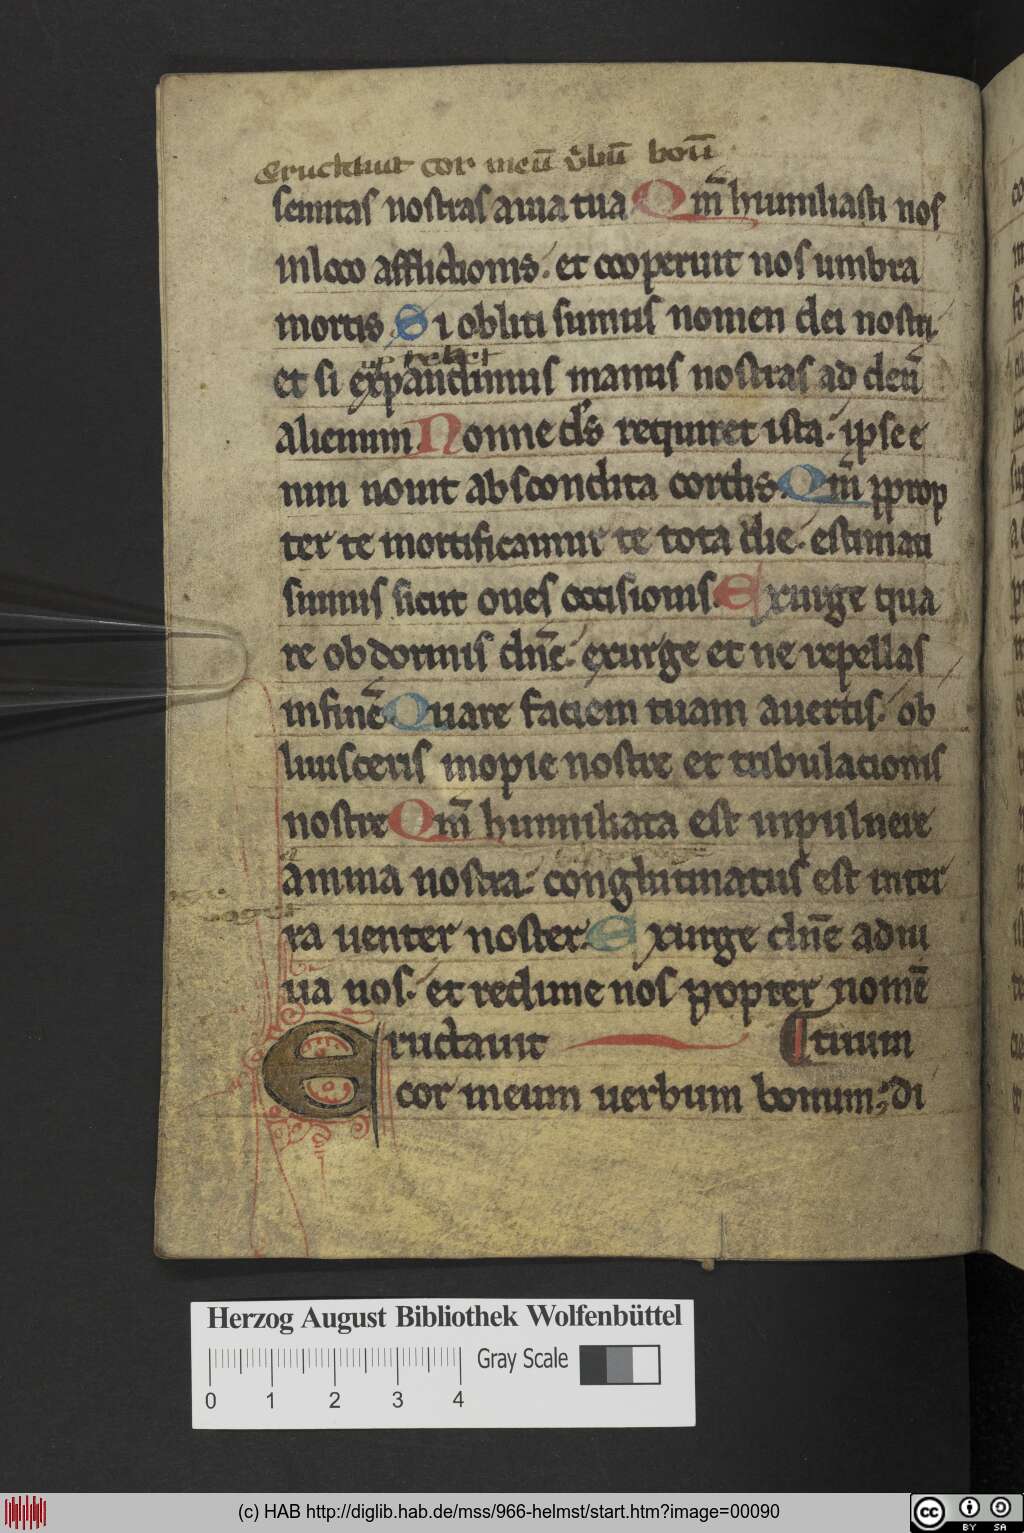 Eructauit cor meū v̓bū bonū
semitas nostras a uia tua Qm̄ humiliasti nos
in loco afflictionis. et cooperuit nos umbra
mortis Si obliti sumus nomen dei nostri.
et si expandimus manus nostras ad deū
alienum Nonne ds̄ requiret ista. ipse e
nim nouit abscondita cordis. Qm̄ pprop
ter te mortificamur te tota die. estimati
sumus sicut oues occisionis. Exurge qua
re obdormis dn̄e. exurge et ne repellas
in finē Quare faciem tuam auertis. ob
liuisceris inopie nostre et tribulationis
nostre Qm̄ humiliata est in puluere
anima nostra. conglutinatus est in ter
ra uenter noster. Exurge dn̄e adiu
ua nos. et redime nos propter nomē
Eructauit tuum
cor meum uerbum bonum; di
Herzog August Bibliothek Wolfenbüttel
Gray Scale
0 1 2 3 4
(c) HAB http://diglib.hab.de/mss/966-helmst/start.htm?image=00090
cc BY SA